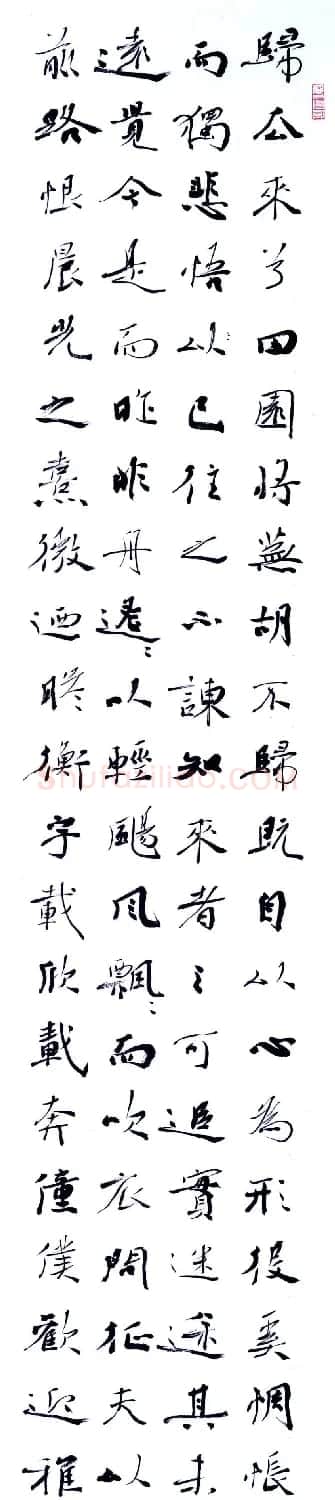 歸去來兮田園將蕪胡不歸既自以心為形役奚惆悵
而獨悲悟以已往之不諫知來者之可追實迷途其未
遠覺今是而昨非舟遥〻以輕颺風飄〻而吹衣問征夫以
前路恨晨光之熹微迺瞻衡宇載欣載奔僮僕歡迎稚